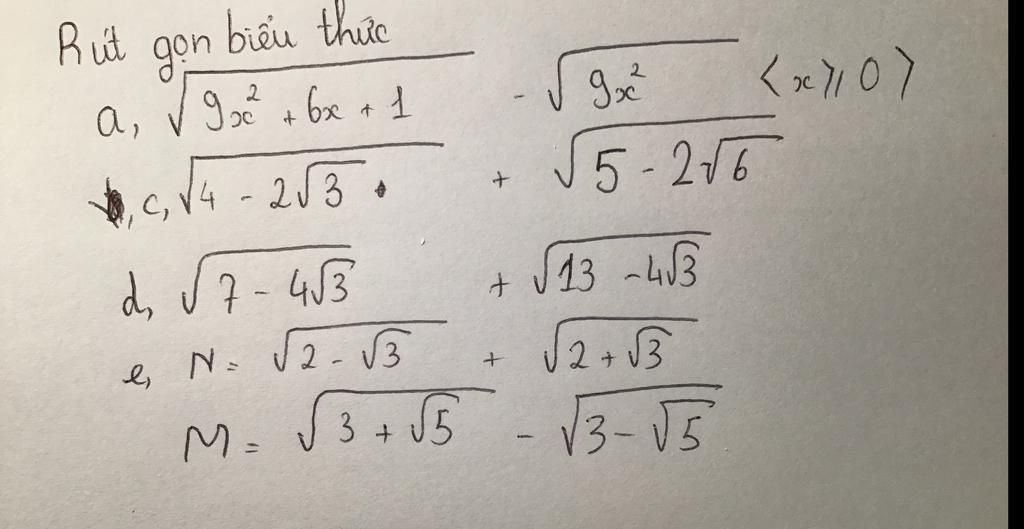 Rút gọn biểu thức
a, √(9x² + 6x + 1) - √(9x²) <x ⩾ 0>
c, √(4 - 2√3) + √(5 - 2√6)
d, √(7 - 4√3) + √(13 - 4√3)
e, N = √(2 - √3) + √(2 + √3)
M = √(3 + √5) - √(3 - √5)